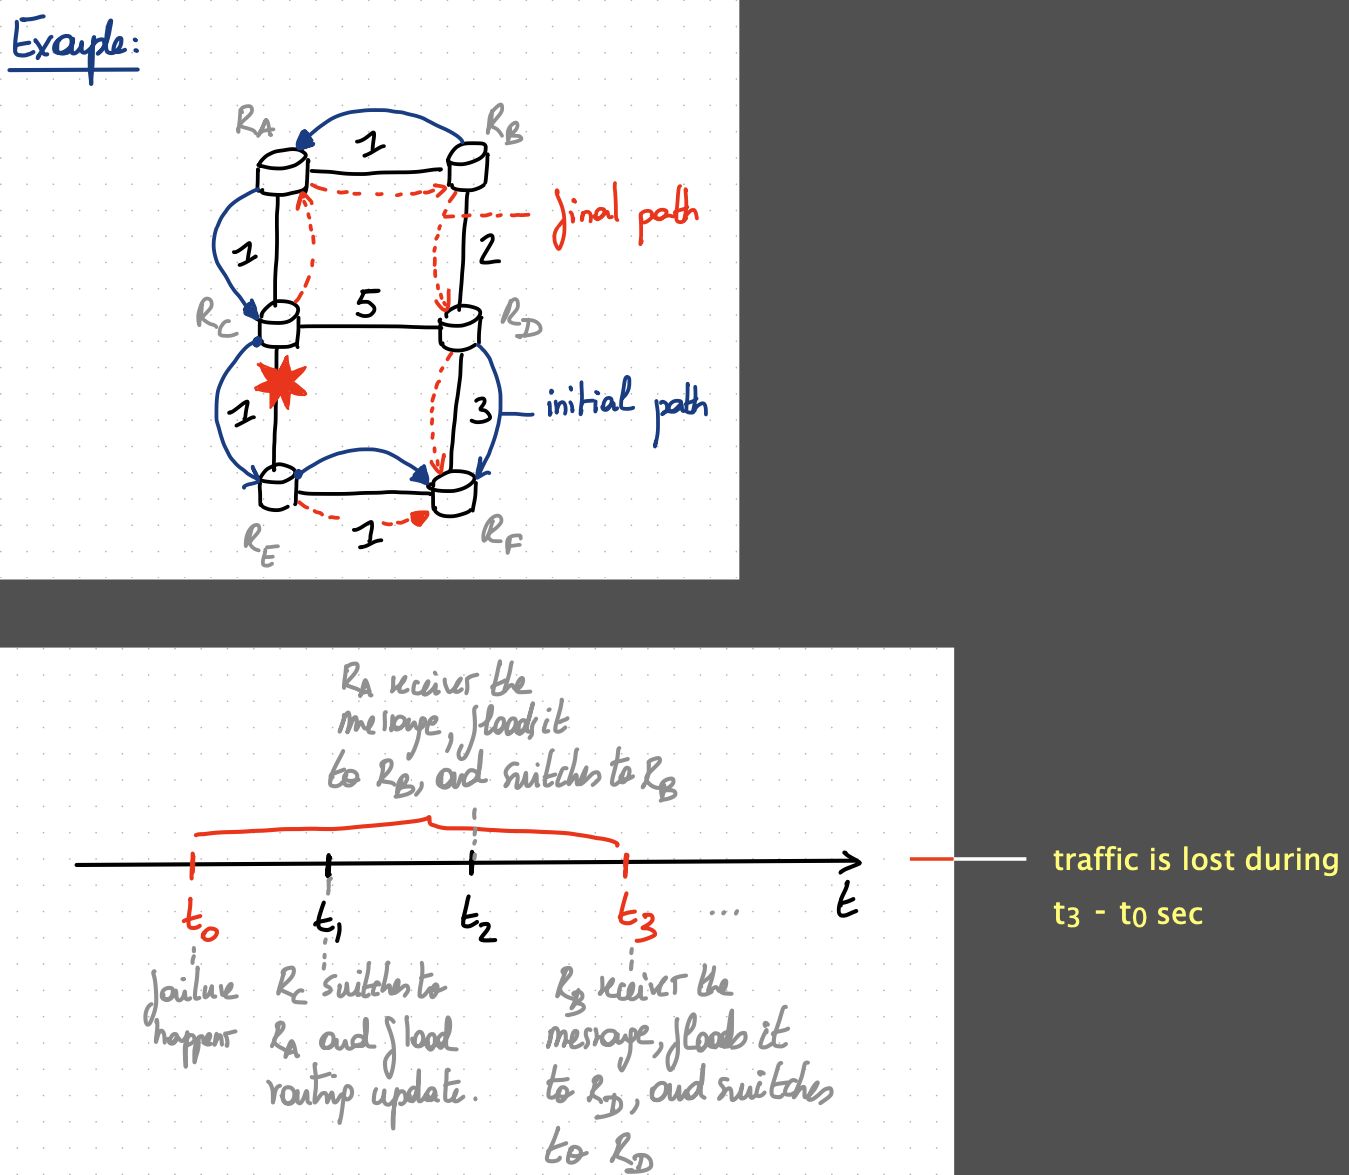 Example:
R_A
R_B
1
final path
1
2
R_C
5
R_D
1
3
initial path
R_E
1
R_F
R_A receives the
message, floods it
to R_B, and switches to R_B
t_0
t_1
t_2
t_3
...
t
failure
happens
R_C switches to
R_A and flood
routing update.
R_B receives the
message, floods it
to R_D, and switches
to R_D
traffic is lost during
t3 - t0 sec